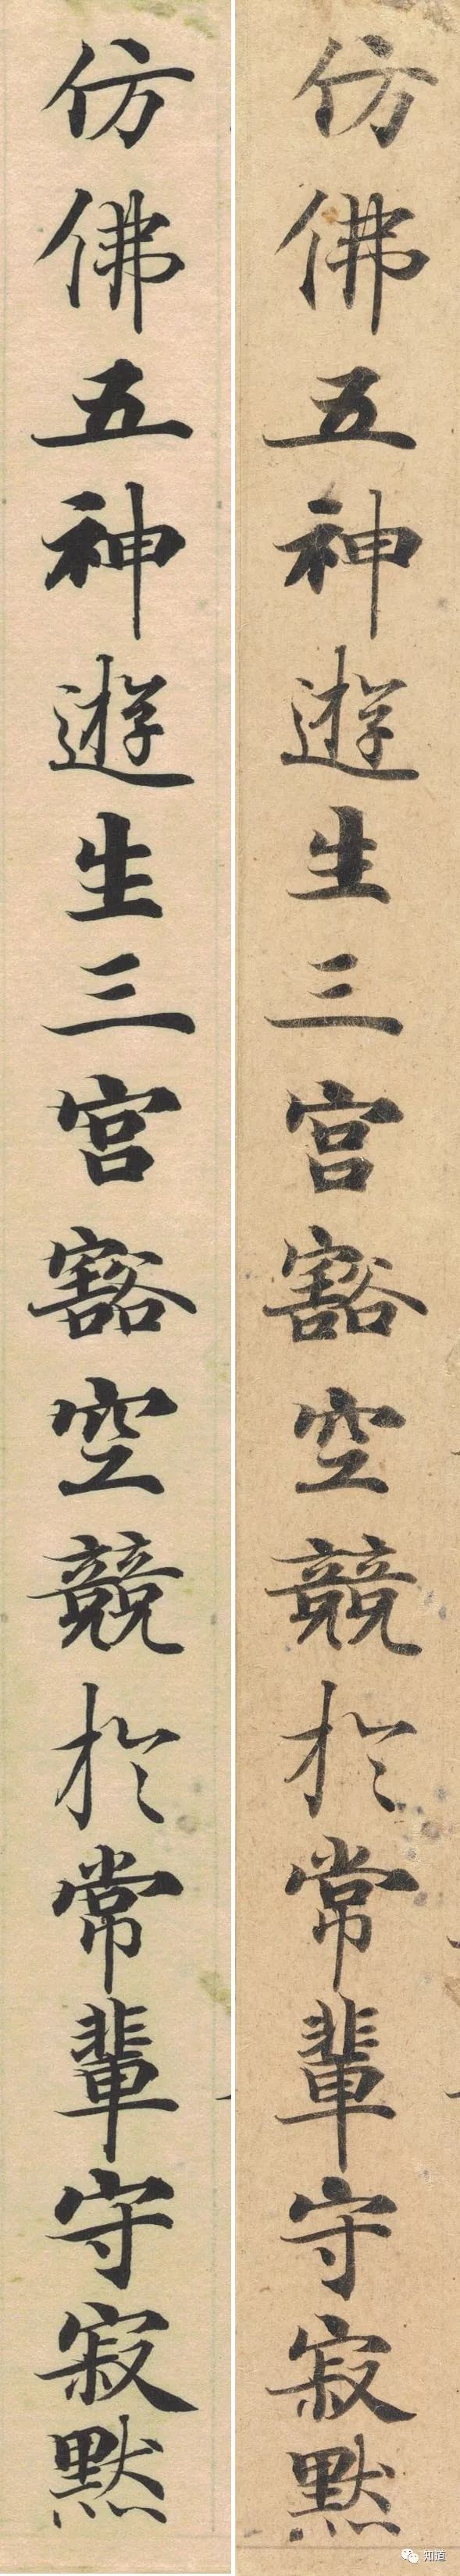 仿佛五神遊生三宫豁空競於常輩守寂默
仿佛五神遊生三宫豁空競於常輩守寂默
知道